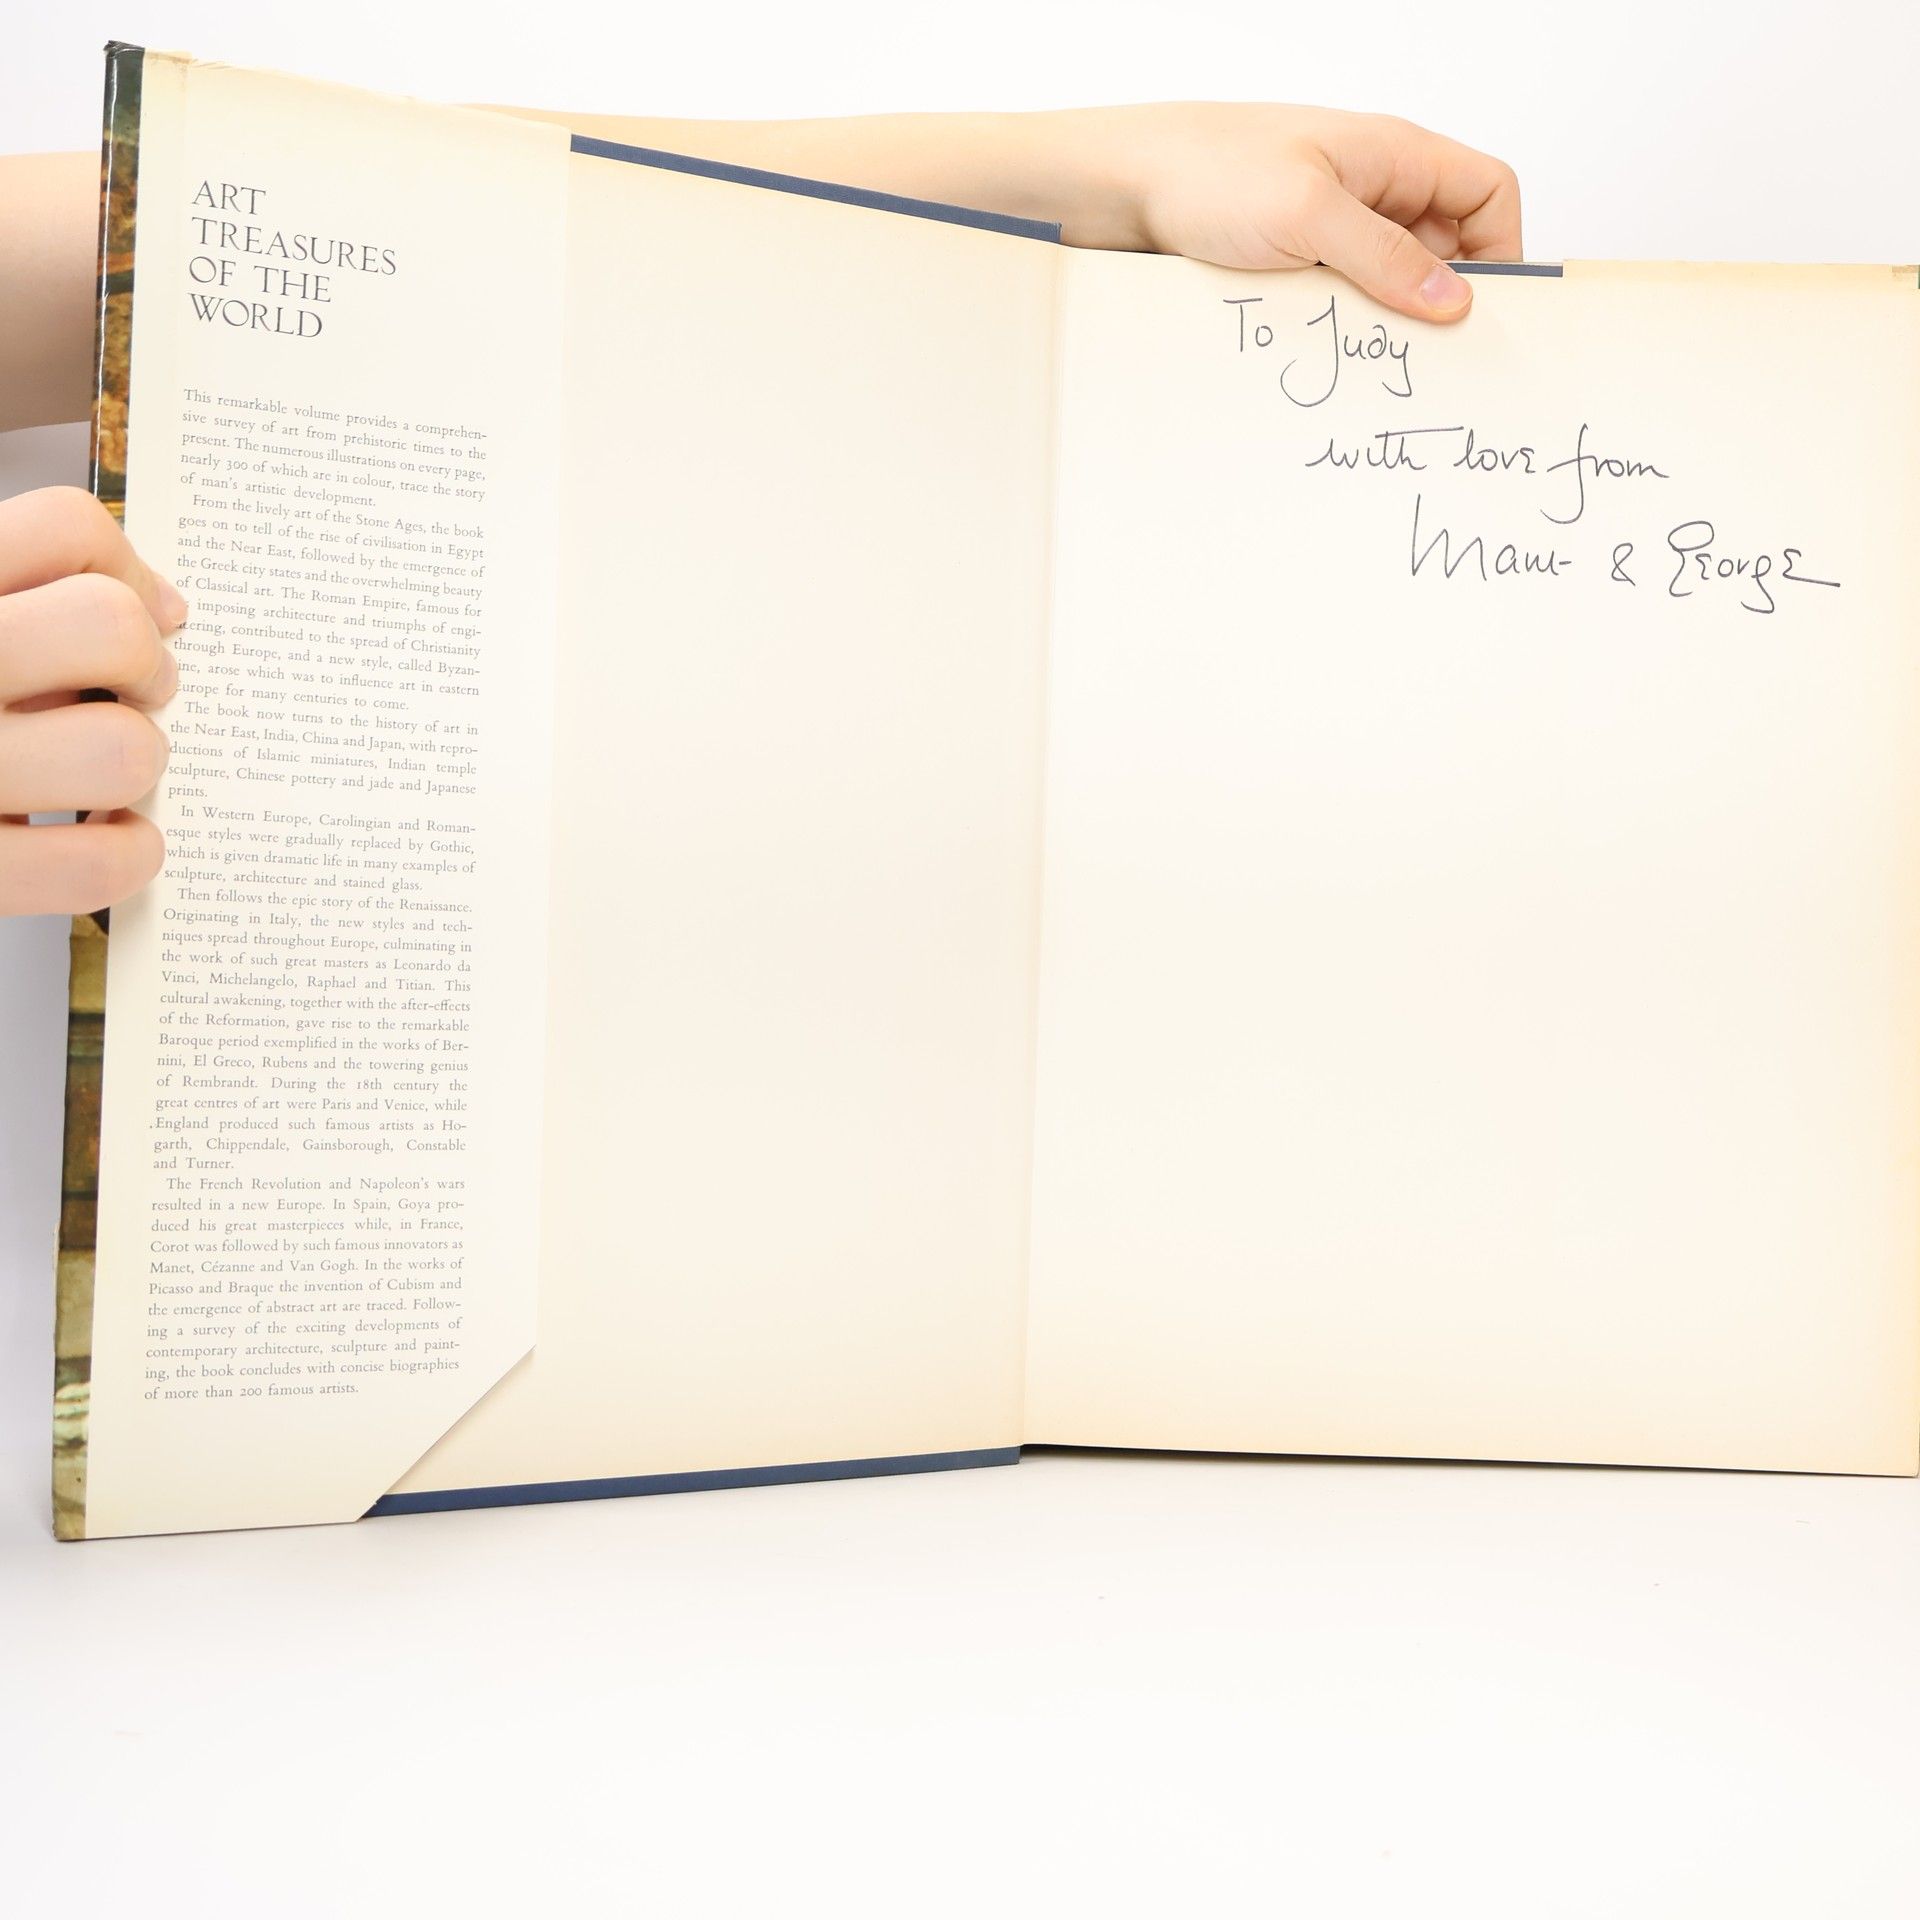 ART
TREASURES
OF THE
WORLD
This remarkable volume provides a comprehen-
sive survey of art from prehistoric times to the
present. The numerous illustrations on every page,
nearly 300 of which are in colour, trace the story
of man's artistic development.
From the lively art of the Stone Ages, the book
goes on to tell of the rise of civilisation in Egypt
and the Near East, followed by the emergence of
the Greek city states and the overwhelming beauty
of Classical art. The Roman Empire, famous for
imposing architecture and triumphs of engi-
eering, contributed to the spread of Christianity
through Europe, and a new style, called Byzan-
ine, arose which was to influence art in eastern
Europe for many centuries to come.
The book now turns to the history of art in
the Near East, India, China and Japan, with repro-
ductions of Islamic miniatures, Indian temple
sculpture, Chinese pottery and jade and Japanese
prints.
In Western Europe, Carolingian and Roman-
esque styles were gradually replaced by Gothic,
which is given dramatic life in many examples of
sculpture, architecture and stained glass.
Then follows the epic story of the Renaissance.
Originating in Italy, the new styles and tech-
niques spread throughout Europe, culminating in
the work of such great masters as Leonardo da
Vinci, Michelangelo, Raphael and Titian. This
cultural awakening, together with the after-effects
of the Reformation, gave rise to the remarkable
Baroque period exemplified in the works of Ber-
nini, El Greco, Rubens and the towering genius
of Rembrandt. During the 18th century the
great centres of art were Paris and Venice, while
England produced such famous artists as Ho-
garth, Chippendale, Gainsborough, Constable
and Turner.
The French Revolution and Napoleon's wars
resulted in a new Europe. In Spain, Goya pro-
duced his great masterpieces while, in France,
Corot was followed by such famous innovators as
Manet, Cézanne and Van Gogh. In the works of
Picasso and Braque the invention of Cubism and
the emergence of abstract art are traced. Follow-
ing a survey of the exciting developments of
contemporary architecture, sculpture and paint-
ing, the book concludes with concise biographies
of more than 200 famous artists.
To Judy
with love from
& George